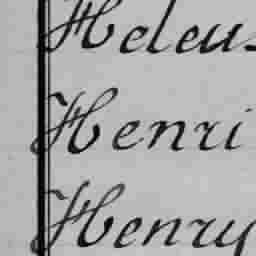 Heleus
Henri
Henry